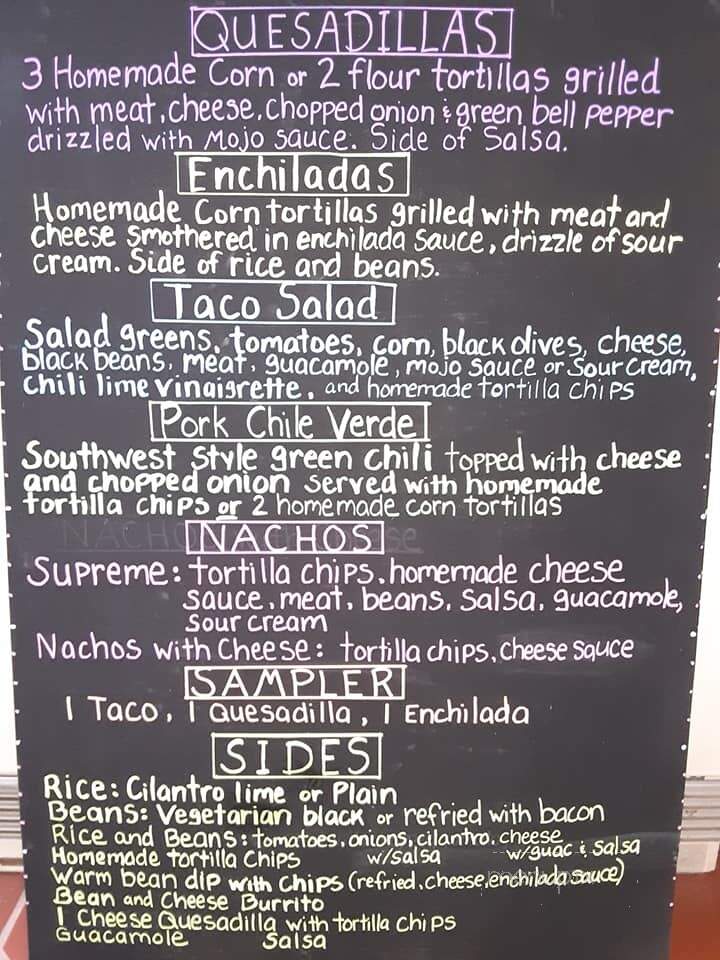 QUESADILLAS
3 Homemade Corn or 2 flour tortillas grilled
with meat, cheese, chopped onion & green bell pepper
drizzled with Mojo sauce. Side of Salsa.
Enchiladas
Homemade Corn tortillas grilled with meat and
cheese smothered in enchilada sauce, drizzle of sour
cream. Side of rice and beans.
Taco Salad
Salad greens, tomatoes, corn, black olives, cheese,
black beans, meat, guacamole, mojo sauce or Sour cream,
chili lime vinaigrette, and homemade tortilla chips
Pork Chile Verde
Southwest style green chili topped with cheese
and chopped onion served with homemade
tortilla chips or 2 homemade corn tortillas
NACHOS
Supreme: tortilla chips, homemade cheese
sauce, meat, beans, salsa, guacamole,
sour cream
Nachos with Cheese: tortilla chips, cheese sauce
SAMPLER
1 Taco, 1 Quesadilla, 1 Enchilada
SIDES
Rice: Cilantro lime or Plain
Beans: Vegetarian black or refried with bacon
Rice and Beans: tomatoes, onions, cilantro, cheese
Homemade tortilla Chips w/salsa w/guac & salsa
Warm bean dip with chips (refried, cheese, enchilada sauce)
Bean and Cheese Burrito
1 Cheese Quesadilla with tortilla chips
Guacamole Salsa